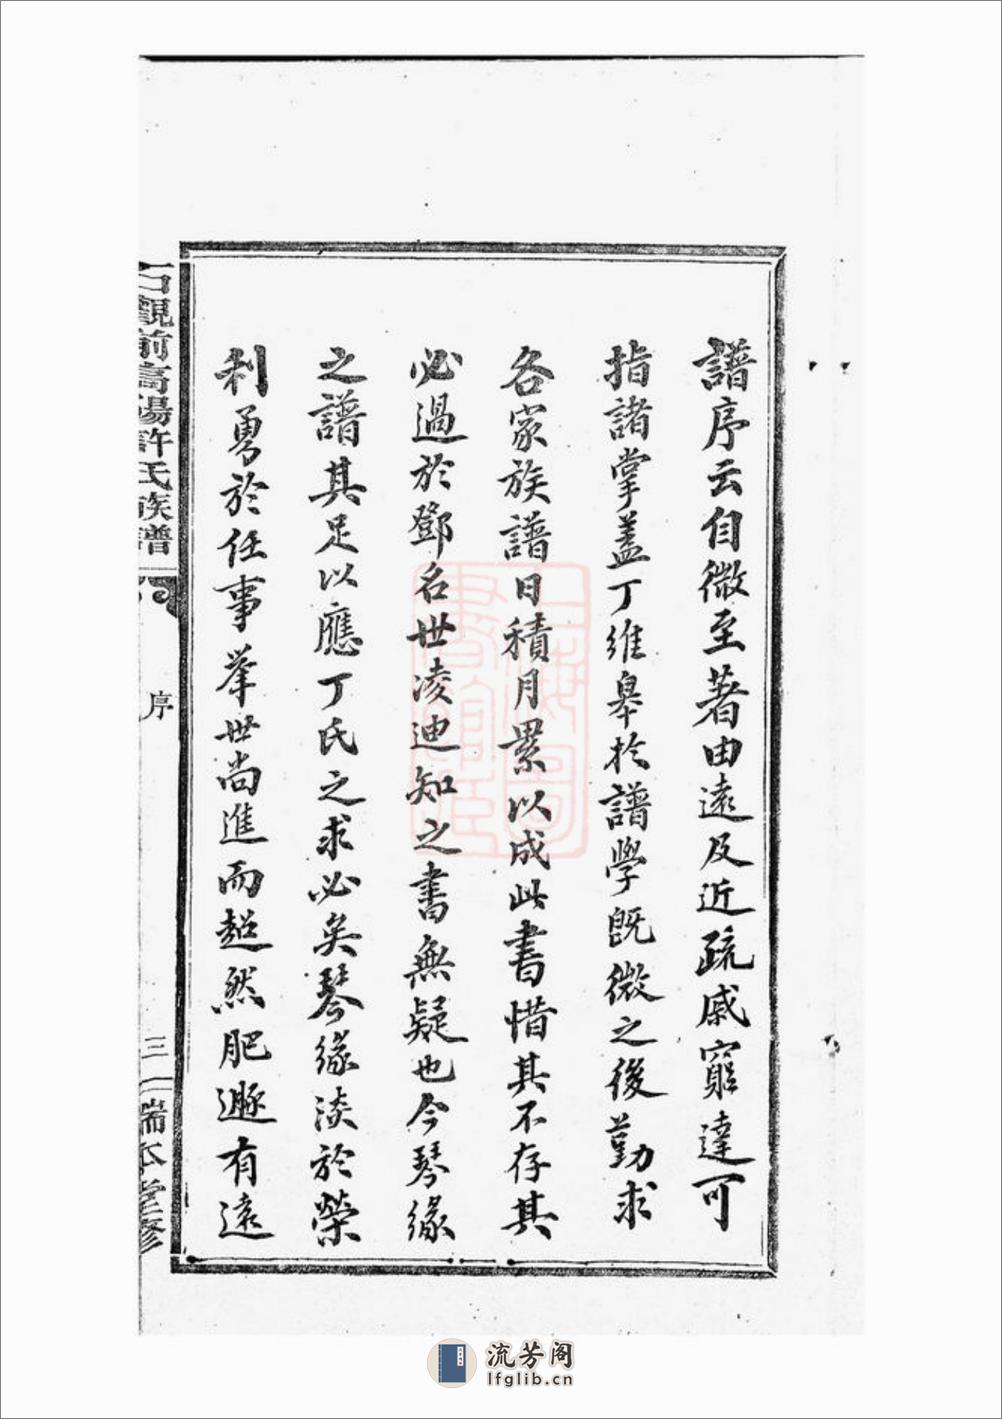 譜序云自微至著由遠及近疏戚窮達可
指諸掌蓋丁維皋於譜學既微之後勤求
各家族譜日積月累以成此書惜其不存其
必過於鄧名世凌迪知之書無疑也今琴緣
之譜其足以應丁氏之求必矣琴緣淡於榮
利勇於任事舉世尚進而超然肥遯有遠
石觀前高陽許氏族譜
序
三
上海圖書館藏
流芳阁
lfglib.cn